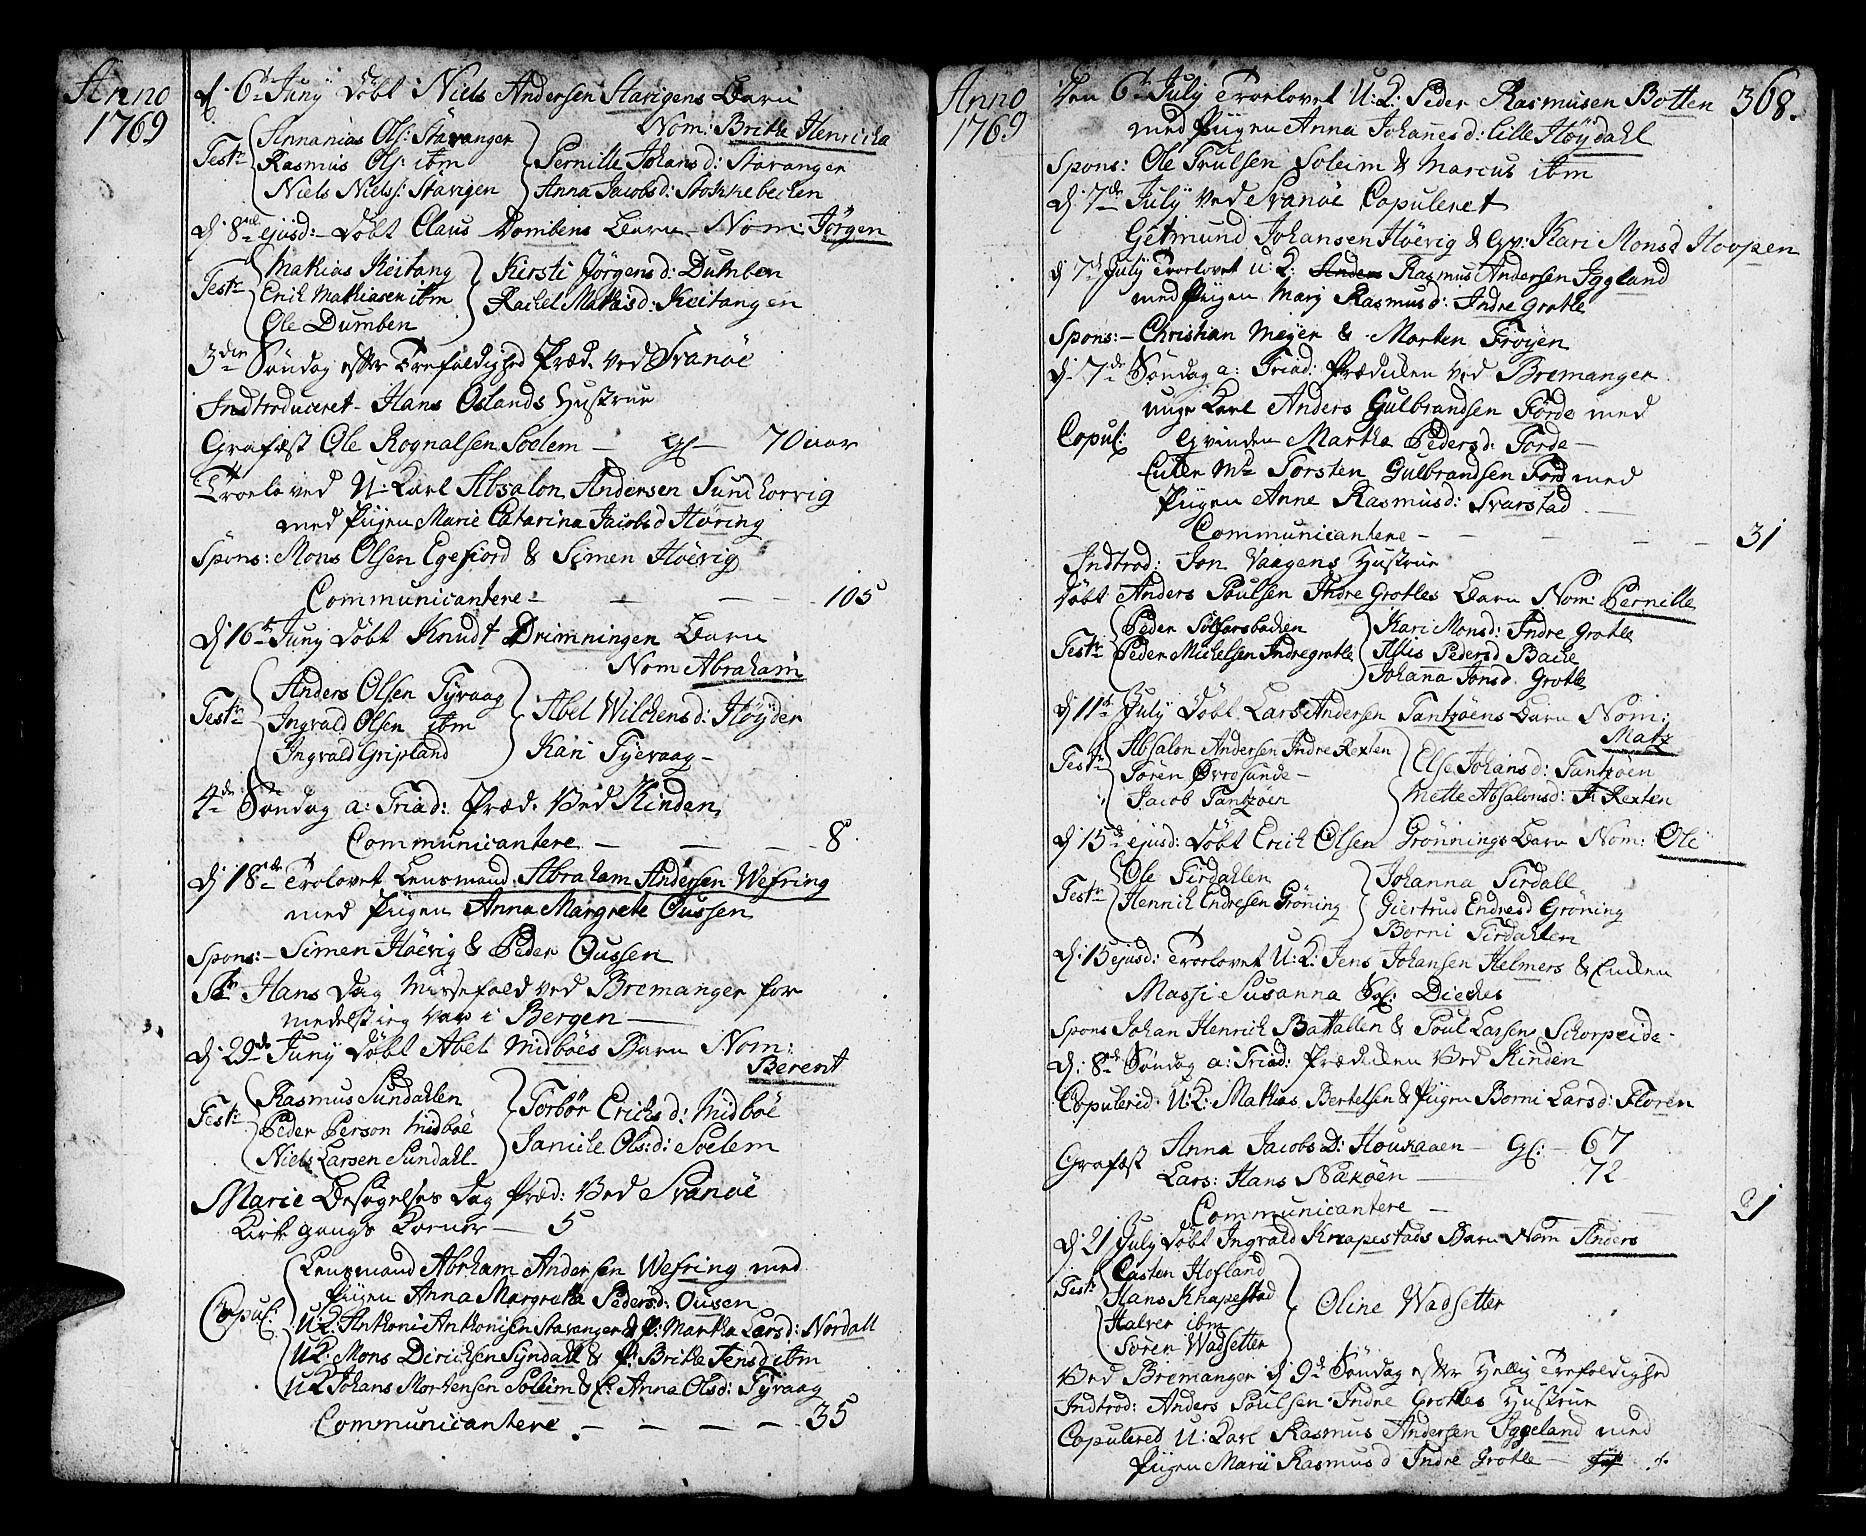 Anno
1769
d. 6te Juny Døbt Niels Andersen Starigens Barn
Nom: Brithe Henricha
Test: Annanias Ols: Stavanger
Rasmus Ols: ibm
Niels Niels: Starigen
Pernille Johansd: Stavanger
Anna Jacobsd: Stokkebechen
d. 8de ejusd: Døbt Claus Dombens Barn Nom: Jørgen
Test: Mathias Keitang
Erich Mathiasen ibm
Ole Dumben
Kirsti Jørgensd: Dumben
Rachel Mathisd: Keitangen
3die Søndag efter Trefoldighed Præd. ved Svanøe
Indtroduceret Hans Oslands Hustrue
Grafæst Ole Rognalsen Soelem — gl — 70 aar
Troeloved U: Karl Absalon Andersen Sundhovrig
med Pigen Marie Catarina Jacobsd Høvig
Spons: Mons Olsen Egefiord & Simen Høevig
Communicantere — 105
d. 16te Juny Døbt Knudt Drimningen Barn
Nom Abraham
Test: Anders Olsen Tyvaag
Ingvald Olsen ibm
Ingvald Gripland
Abel Wilchensd: Høyder
Kari Tyevaag
4de Søndag a: Triad: Præd. Ved Kinden
Communicantere — 8
d. 18de Trolovet Lensmand Abraham Andersen Wefring
med Pigen Anna Margrete Oussen
Spons: Simen Høevig & Peder Oussen
St Hans Dag Missefald ved Bremanger for
medelst ieg var i Bergen
d. 29de Juny Døbt Abel Midbøes Barn Nom:
Berent
Test: Rasmus Sundahlen
Peder Person Midbøe
Niels Larsen Sundahl
Torbør Erichsd: Midbøe
Janiche Ols:d: Soelem
Marie Besøgelses Dag Præd: Ved Svanøe
Kirkgangs Koner — 5
Copul: Lensmand Abrham Andersen Wefring med
Pigen Anna Margrethe Pedersd: Ousen
U:K: Anthoni Anthonisen Stavanger & P: Martha Larsd: Nordall
UK: Mons Dirichsen Syndall & P: Brithe Jensd ibm
UK Johans Mortensen Soleim & E: Anna Olsd: Tyvaag
Communicantere — 35
Anno
1769
368.
Den 6te July Troelovet U:K: Peder Rasmusen Botten
med Pigen Anna Johannesd: Lille Høydahl
Spons: Ole Trulsen Soleim & Marcus ibm
d. 7de July ved Svanøe Copuleret
Getmund Johansen Høevig & Kari Monsd Hovpen
d. 7de July Troelovet U:K: Anders Rasmus Andersen Iggland
med Pigen Mari Rasmusd: Indre Grotle
Spons: Christian Meyer & Morten Frøyen
d. 7de Søndag a: Triad: Prædiken ved Bremanger
unge Karl Anders Gulbrandsen Førde med
Copul: Qvinden Martha Pedersd: Førde
Enke Md Torsten Gulbrandsen Førd med
Pigen Anne Rasmusd: Svarstad
Communicantere — 31
Indtrod: Jon Vaagens Hustrue
Døbt Anders Poulsen Indre Grotles Barn Nom: Pernille
Test: Peder Solfarsbachen
Peder Michelsen Indregrotle
Kari Monsd: Indre Grotle
Aslis Pedersd Bache
Johana Jonsd. Grotle
d. 11te July Døbt Lars Andersen Tantzøens Barn Nom:
Matz
Test: Absalon Andersen Indre Rexten
Søren Ørvosunde
Jacob Tantzøen
Else Johansd: Tantzøen
Mette Absalonsd: Rexten
d. 15de ejusd: Døbt Erich Olsen Grønnings Barn Nom: Ole
Test: Ole Tirdahlen
Henrich Endresen Grøning
Johanna Tirdall
Giertrud Endresd Grøning
Borni Tirdahlen
d. 15 ejusd: Troelovet U:K: Jens Johansen Helmers & Enken
Massi Susanna Diechs
Spons Johan Henrich Battallen & Poul Larsen Schorpeide
d: 8de Søndag a: Triad: Prædiken Ved Kinden
Copulered U:K: Mathias Bertelsen & Pigen Borni Larsd: Floren
Grafæst Anna Jacobsd: Houkaaen — gl: — 67
Lars: Hans Nakøen — 72
Communicantere — 21
d. 21 July Døbt Ingvald Knapestads Barn Nom Anders
Test: Casten Hofland
Hans Knapestad
Halver ibm
Søren Wadsetter
Oline Wadsetter
Ved Bremanger d 9de Søndag efter Hellig Trefoldighed
Indtrod: Anders Poulsen Indre Grotles Hustrue
Copulered U: Karl Rasmus Andersen Iggeland med
Pigen Marii Rasmusd Indre Grotle